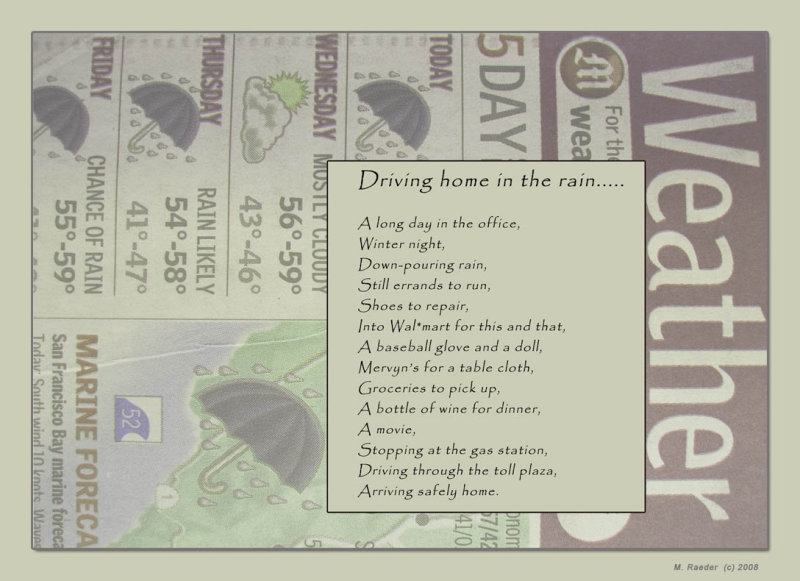 Driving home in the rain.....
A long day in the office,
Winter night,
Down-pouring rain,
Still errands to run,
Shoes to repair,
Into Wal*mart for this and that,
A baseball glove and a doll,
Mervyn's for a table cloth,
Groceries to pick up,
A bottle of wine for dinner,
A movie,
Stopping at the gas station,
Driving through the toll plaza,
Arriving safely home.
Weather
For the
wea
M
5 DAY
TODAY
WEDNESDAY
MOSTLY CLOUDY
56°-59°
43°-46°
THURSDAY
RAIN LIKELY
54°-58°
41°-47°
FRIDAY
CHANCE OF RAIN
55°-59°
MARINE FORECA
San Francisco Bay marine foreca
Today: South wind 10 knots. Waves
52
1
onom
57/42
41/0
M. Raeder (c) 2008